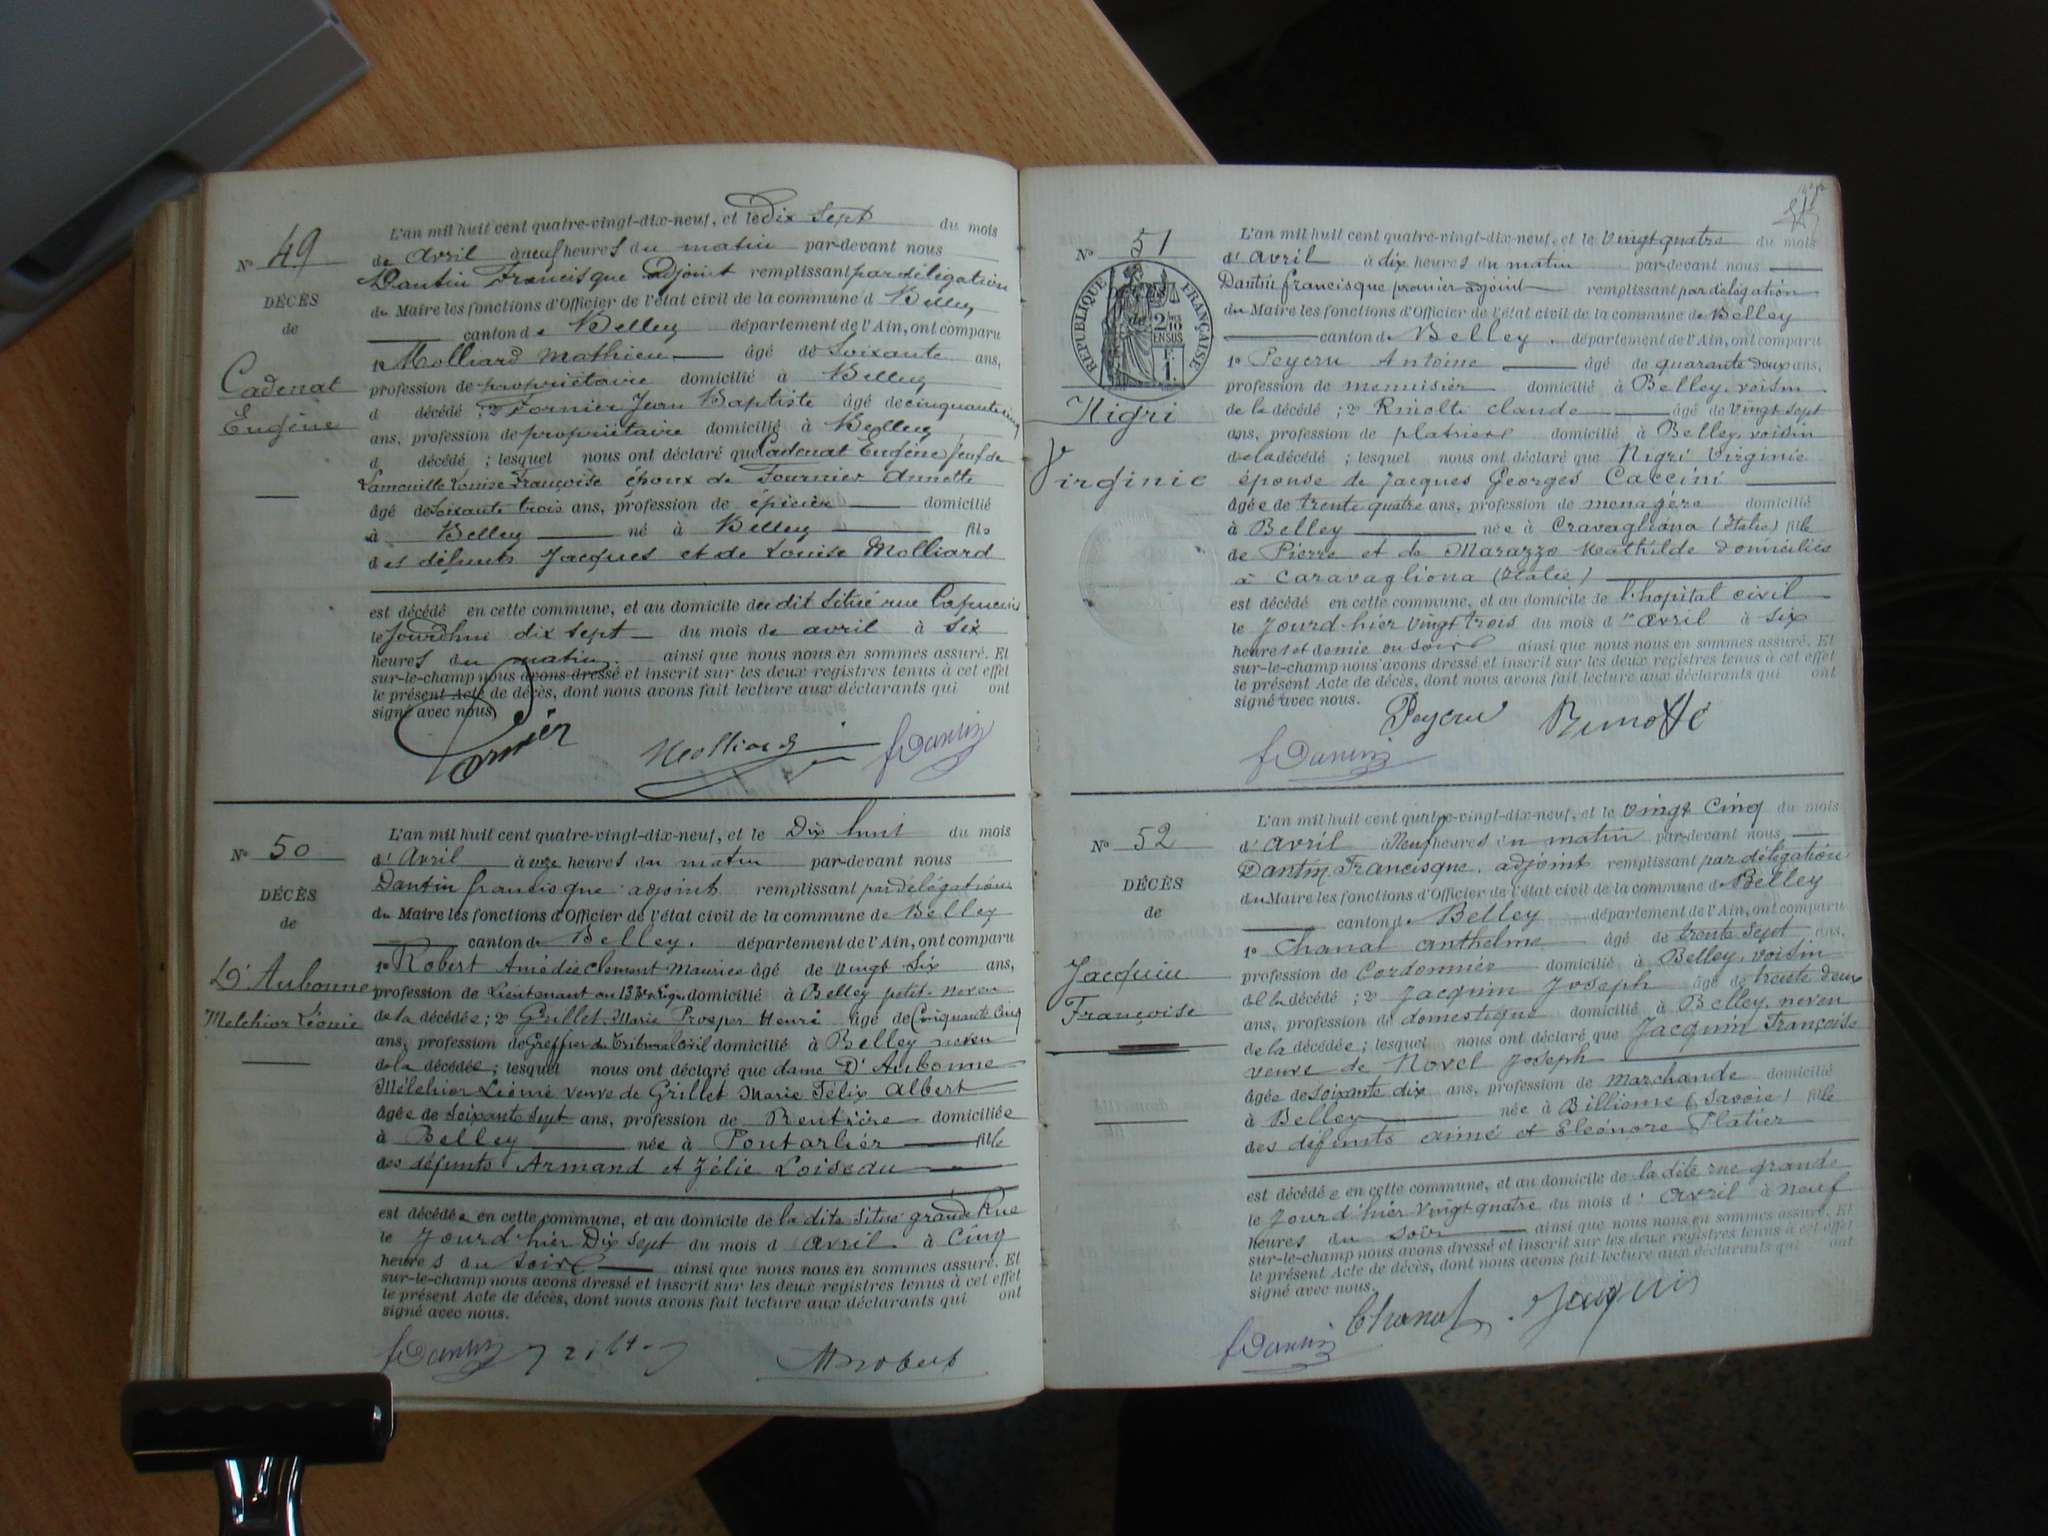 N° 49
DÉCÈS
de
Cadenat
Eugène
L'an mil huit cent quatre-vingt-dix-neuf, et le Dix sept du mois
de avril à neuf heures du matin par-devant nous
Dantin Francisque Adjoint remplissant par délégation
du Maire les fonctions d'Officier de l'état civil de la commune d Belley
canton de Belley département de l'Ain, ont comparu
1° Molliard Mathieu âgé de Soixante ans,
profession de propriétaire domicilié à Belley
d décédé ; 2° Fornier Jean Baptiste âgé de cinquante cinq
ans, profession de propriétaire domicilié à Belley
d décédé ; lesquel nous ont déclaré que Cadenat Eugène veuf de
Lamouille Louise Françoise époux de Fournier Annette
âgé de soixante trois ans, profession de épicier domicilié
à Belley né à Belley fils
des défunts Jacques et de Louise Molliard
est décédé en cette commune, et au domicile du dit situé rue Capucins
le jourdhui dix sept du mois de avril à six
heures du matin ainsi que nous nous en sommes assuré. Et
sur-le-champ nous avons dressé et inscrit sur les deux registres tenus à cet effet
le présent Acte de décès, dont nous avons fait lecture aux déclarants qui ont
signé avec nous.
Fornier Molliard f Dantin
N° 50
DÉCÈS
de
D'Aubonne
Melchior Léonie
L'an mil huit cent quatre-vingt-dix-neuf, et le Dix huit du mois
d'Avril à onze heures du matin par-devant nous
Dantin francisque adjoint remplissant par délégation
du Maire les fonctions d'Officier de l'état civil de la commune de Belley
canton de Belley. département de l'Ain, ont comparu
1° Robert Amédée Clement Maurice âgé de vingt six ans,
profession de Lieutenant au 133e Ligne domicilié à Belley petit-neveu
de la décédée ; 2° Grillet Marie Prosper Henri âgé de Cinquante Cinq
ans, profession de Greffier du Tribunal Civil domicilié à Belley neveu
de la décédée ; lesquel nous ont déclaré que dame D'Aubonne
Mélchior Léonie veuve de Grillet Marie Félix Albert
âgée de soixante sept ans, profession de Rentière domiciliée
à Belley née à Pontarlier fille
des défunts Armand et Zélie Loiseau
est décédée en cette commune, et au domicile de la dite situé grande Rue
le jourd'hier Dix sept du mois d'avril à Cinq
heures du soir ainsi que nous nous en sommes assuré. Et
sur-le-champ nous avons dressé et inscrit sur les deux registres tenus à cet effet
le présent Acte de décès, dont nous avons fait lecture aux déclarants qui ont
signé avec nous.
f Dantin
N° 51
RÉPUBLIQUE FRANÇAISE
Nigri
Virginie
L'an mil huit cent quatre-vingt-dix-neuf, et le vingt quatre du mois
d'avril à dix heures du matin par-devant nous
Dantin francisque premier adjoint remplissant par délégation
du Maire les fonctions d'Officier de l'état civil de la commune de Belley
canton de Belley. département de l'Ain, ont comparu
1° Peycru Antoine âgé de quarante deux ans,
profession de menuisier domicilié à Belley, voisin
de la décédé ; 2° Rmolti claude âgé de vingt sept
ans, profession de platrier domicilié à Belley, voisin
de la décédé ; lesquel nous ont déclaré que Nigri Virginie
épouse de Jacques Georges Caccini
âgée de trente quatre ans, profession de menagère domicilié
à Belley née à Cravagliana (Italie) fille
de Pierre et de Marazzo Mathilde domiciliés
à Caravagliona (Italie)
est décédé en cette commune, et au domicile de l'hopital civil
le jourd-hier vingt trois du mois d'avril à six
heures et demie du soir ainsi que nous nous en sommes assuré. Et
sur-le-champ nous avons dressé et inscrit sur les deux registres tenus à cet effet
le présent Acte de décès, dont nous avons fait lecture aux déclarants qui ont
signé avec nous.
Peycru
f Dantin
N° 52
DÉCÈS
de
Jacquin
Françoise
L'an mil huit cent quatre-vingt-dix-neuf, et le vingt Cinq du mois
d'avril à Neuf heures du matin par-devant nous
Dantin Francisque, adjoint remplissant par délégation
du Maire les fonctions d'Officier de l'état civil de la commune de Belley
canton de Belley département de l'Ain, ont comparu
1° Chanat anthelme âgé de trente sept ans,
profession de Cordonnier domicilié à Belley, voisin
de la décédé ; 2° Jacquin Joseph âgé de trente deux
ans, profession de domestique domicilié à Belley, neveu
de la décédée ; lesquel nous ont déclaré que Jacquin Françoise
veuve de Novel Joseph
âgée de soixante dix ans, profession de Marchande domicilié
à Belley née à Billieme (Savoie) fille
des défunts aimé et Eléonore Platier
est décédée en cette commune, et au domicile de la dite rue grande
le jourd'hier vingt quatre du mois d'avril à neuf
heures du soir ainsi que nous nous en sommes assuré. Et
sur-le-champ nous avons dressé et inscrit sur les deux registres tenus à cet effet
le présent Acte de décès, dont nous avons fait lecture aux déclarants qui ont
signé avec nous.
f Dantin Chanat Jaquin